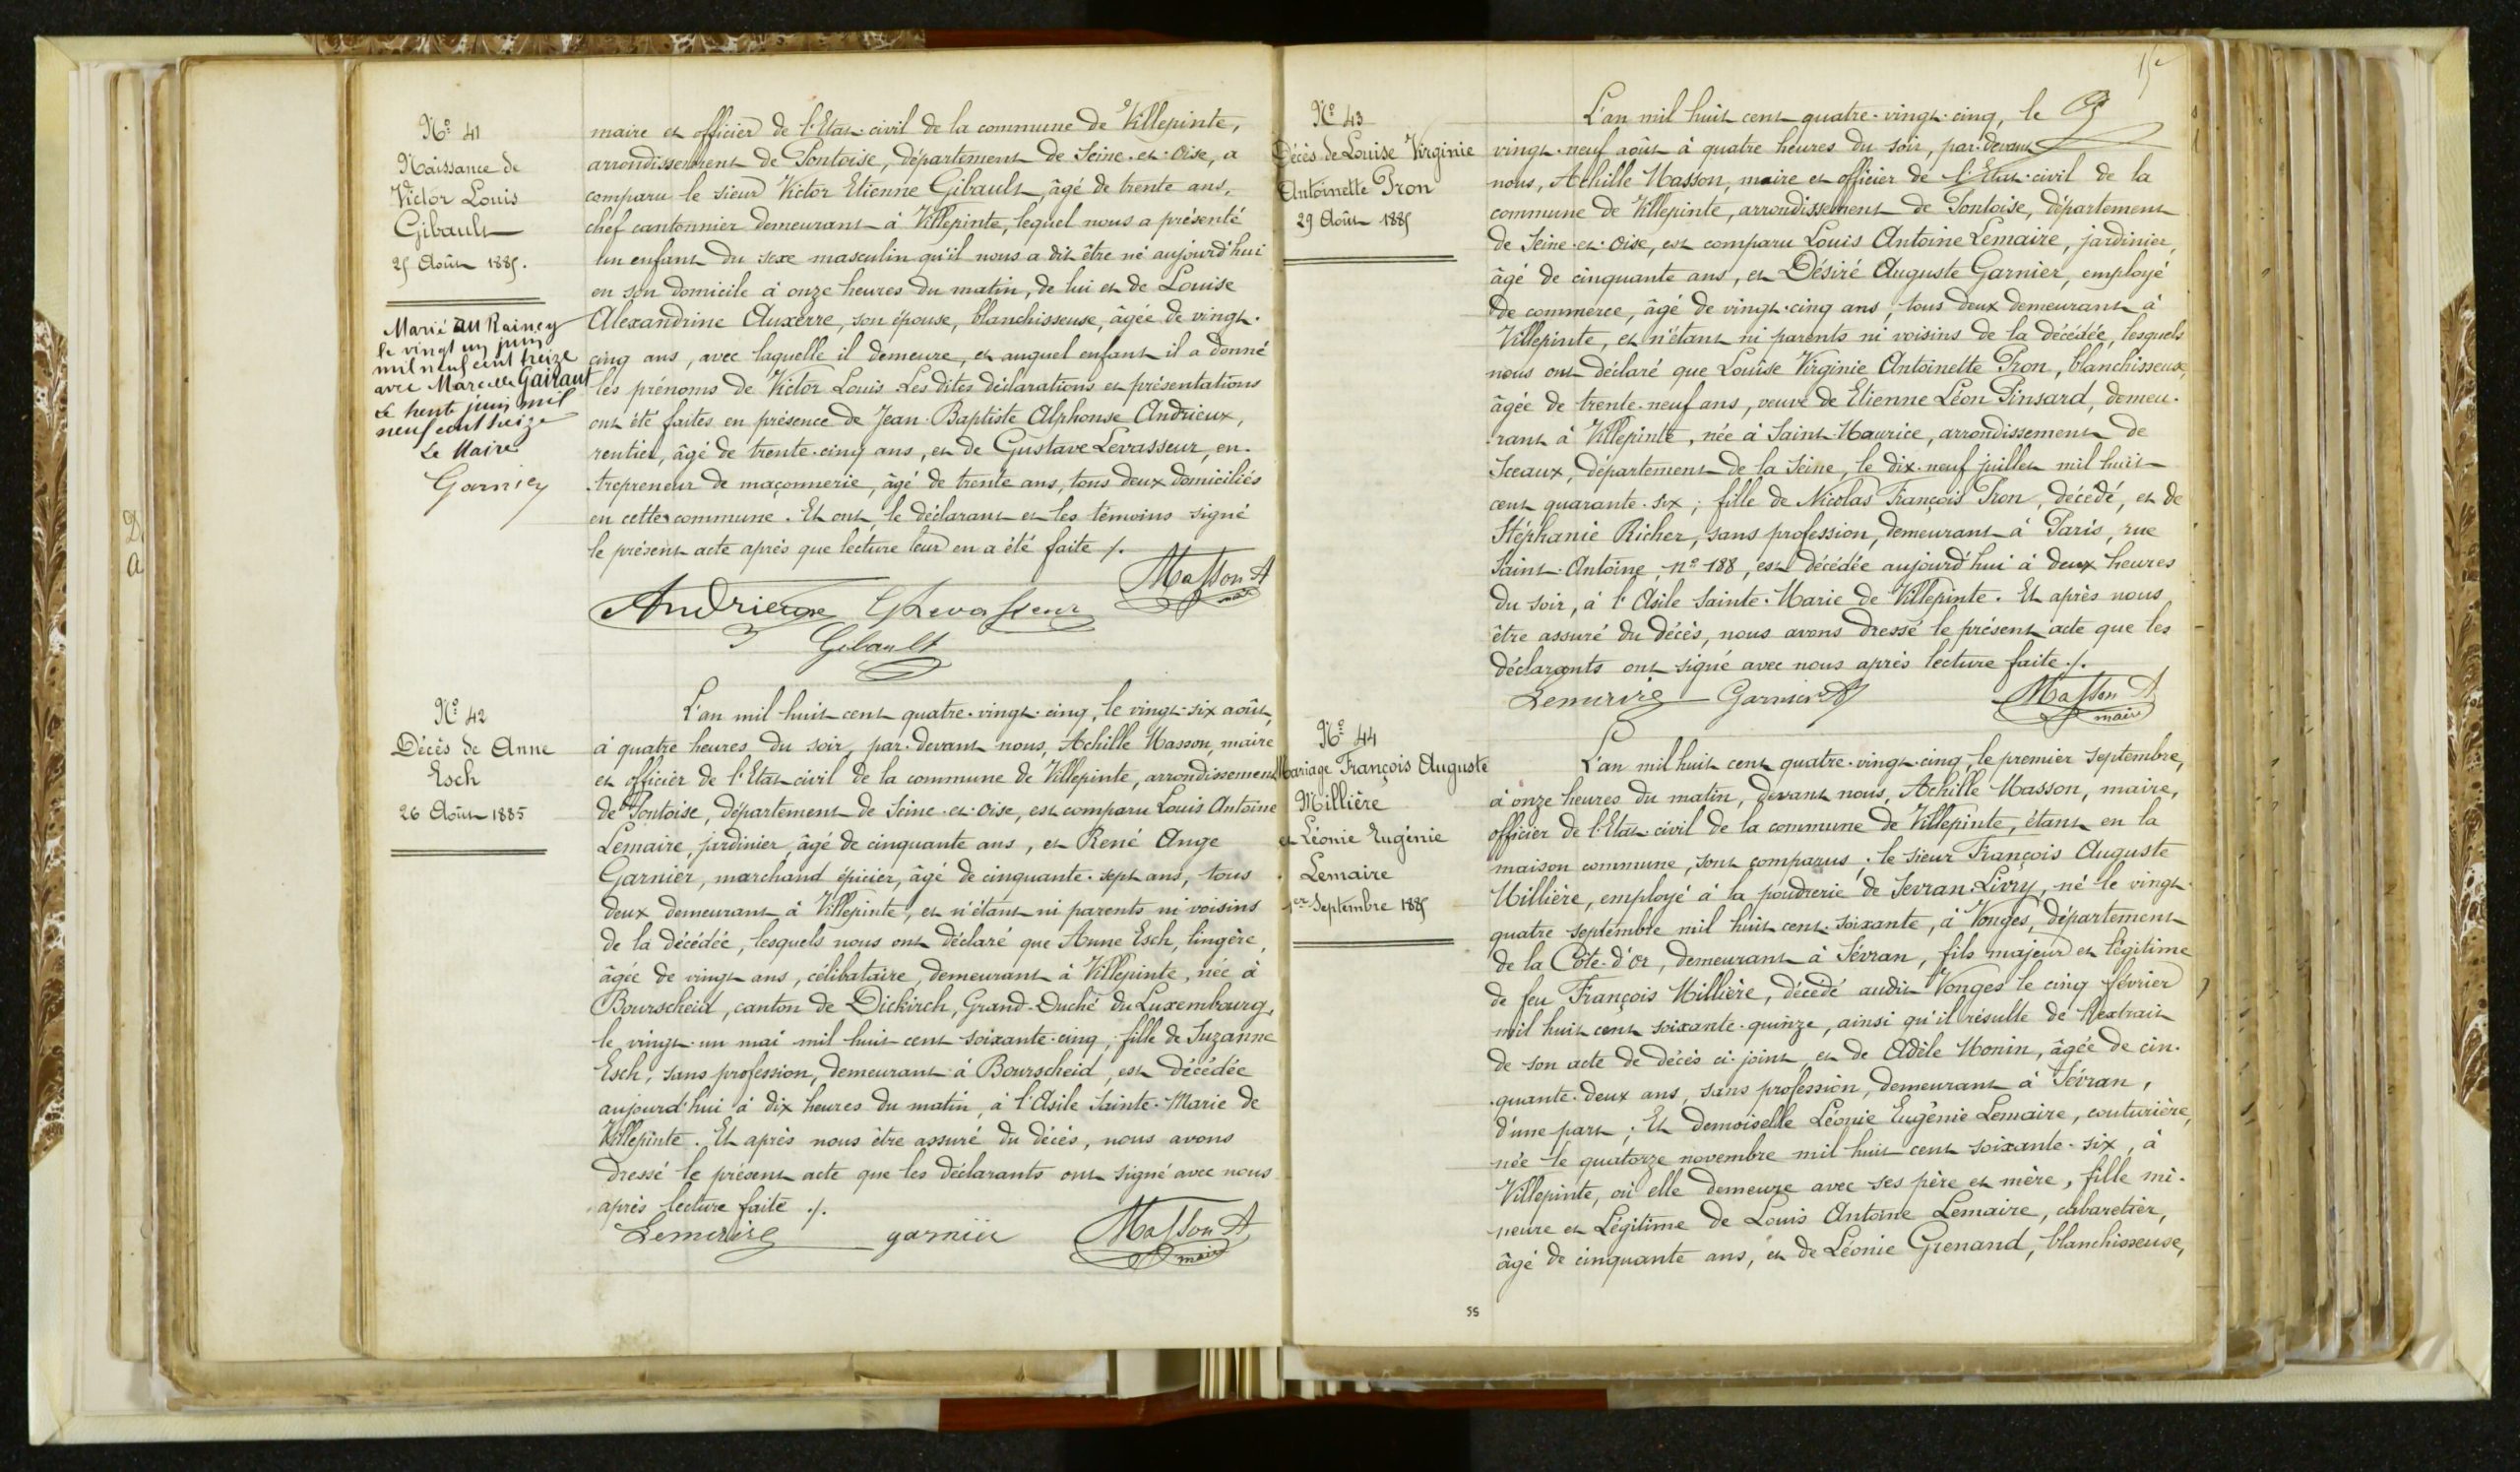 Nº 41
Naissance de
Victor Louis
Gibault
25 Août 1885.
Marié au Raincy
le vingt un juin
mil neuf cent treize
avec Marcelle
Le trente juin mil
neuf cent treize
Le Maire
maire et officier de l'Etat-civil de la commune de Villepinte,
arrondissement de Pontoise, département de Seine-et-Oise, a
comparu le sieur Victor Etienne Gibault, âgé de trente ans,
chef cantonnier demeurant à Villepinte, lequel nous a présenté
un enfant du sexe masculin qu'il nous a dit être né aujourd'hui
en son domicile à onze heures du matin, de lui et de Louise
Alexandrine Auxerre, son épouse, blanchisseuse, âgée de vingt-
cinq ans, avec laquelle il demeure, et auquel enfant il a donné
les prénoms de Victor Louis. Les dites déclarations et présentations
ont été faites en présence de Jean-Baptiste Alphonse Andrieux,
rentier, âgé de trente-cinq ans, et de Gustave Levasseur, en-
trepreneur de maçonnerie, âgé de trente ans, tous deux domiciliés
en cette commune. Et ont, le déclarant et les témoins signé
le présent acte après que lecture leur en a été faite ./.
Masson A
maire
Andrieux GLevasseur
Gibault
Nº 42
Décès de Anne
Esch
26 Août 1885
L'an mil huit cent quatre-vingt-cinq, le vingt-six août,
à quatre heures du soir, par-devant nous, Achille Masson, maire
et officier de l'Etat-civil de la commune de Villepinte, arrondissement
de Pontoise, département de Seine-et-Oise, est comparu Louis Antoine
Lemaire, jardinier, âgé de cinquante ans, et René Ange
Garnier, marchand épicier, âgé de cinquante-sept ans, tous
deux demeurant à Villepinte, et n'étant ni parents ni voisins
de la décédée, lesquels nous ont déclaré que Anne Esch, lingère,
âgée de vingt ans, célibataire, demeurant à Villepinte, née à
Bourscheid, canton de Dickirch, Grand-Duché du Luxembourg,
le vingt-un mai mil huit cent soixante-cinq, fille de Suzanne
Esch, sans profession, demeurant à Bourscheid, est décédée
aujourd'hui à dix heures du matin, à l'Asile Sainte-Marie de
Villepinte. Et après nous être assuré du décès, nous avons
dressé le présent acte que les déclarants ont signé avec nous
après lecture faite ./.
Lemaire garnier Masson A
maire
Nº 43
Décès de Louise Virginie
Antoinette Pron
29 Août 1885
L'an mil huit cent quatre-vingt-cinq, le
vingt-neuf août à quatre heures du soir, par-devant
nous, Achille Masson, maire et officier de l'Etat-civil de la
commune de Villepinte, arrondissement de Pontoise, département
de Seine-et-Oise, est comparu Louis Antoine Lemaire, jardinier,
âgé de cinquante ans, et Désiré Auguste Garnier, employé
de commerce, âgé de vingt-cinq ans, tous deux demeurant à
Villepinte, et n'étant ni parents ni voisins de la décédée, lesquels
nous ont déclaré que Louise Virginie Antoinette Pron, blanchisseuse,
âgée de trente-neuf ans, veuve de Etienne Léon Pinsard, demeu-
rant à Villepinte, née à Saint-Maurice, arrondissement de
Sceaux, département de la Seine, le dix-neuf juillet mil huit
cent quarante-six; fille de Nicolas François Pron, décédé, et de
Stéphanie Richer, sans profession, demeurant à Paris, rue
Saint-Antoine, nº 188, est décédée aujourd'hui à deux heures
du soir, à l'Asile Sainte-Marie de Villepinte. Et après nous
être assuré du décès, nous avons dressé le présent acte que les
déclarants ont signé avec nous après lecture faite ./.
Lemaire Garnier Masson A
maire
Nº 44
Mariage François Auguste
Millière
et Léonie Eugénie
Lemaire
1er Septembre 1885
L'an mil huit cent quatre-vingt-cinq, le premier Septembre,
à onze heures du matin, devant nous, Achille Masson, maire,
officier de l'Etat-civil de la commune de Villepinte, étant en la
maison commune, sont comparus; le sieur François Auguste
Millière, employé à la poudrerie de Sevran-Livry, né le vingt-
quatre septembre mil huit cent soixante, à Vonges, département
de la Côte-d'or, demeurant à Sévran, fils majeur et légitime
de feu François Millière, décédé audit Vonges le cinq février
mil huit cent soixante-quinze, ainsi qu'il résulte de l'extrait
de son acte de décès ci-joint, et de Adèle Monin, âgée de cin-
quante-deux ans, sans profession, demeurant à Sévran,
d'une part; Et demoiselle Léonie Eugénie Lemaire, couturière,
née le quatorze novembre mil huit cent soixante-six, à
Villepinte, où elle demeure avec ses père et mère, fille mi-
neure et Légitime de Louis Antoine Lemaire, cabaretier,
âgé de cinquante ans, et de Léonie Grenand, blanchisseuse,
55